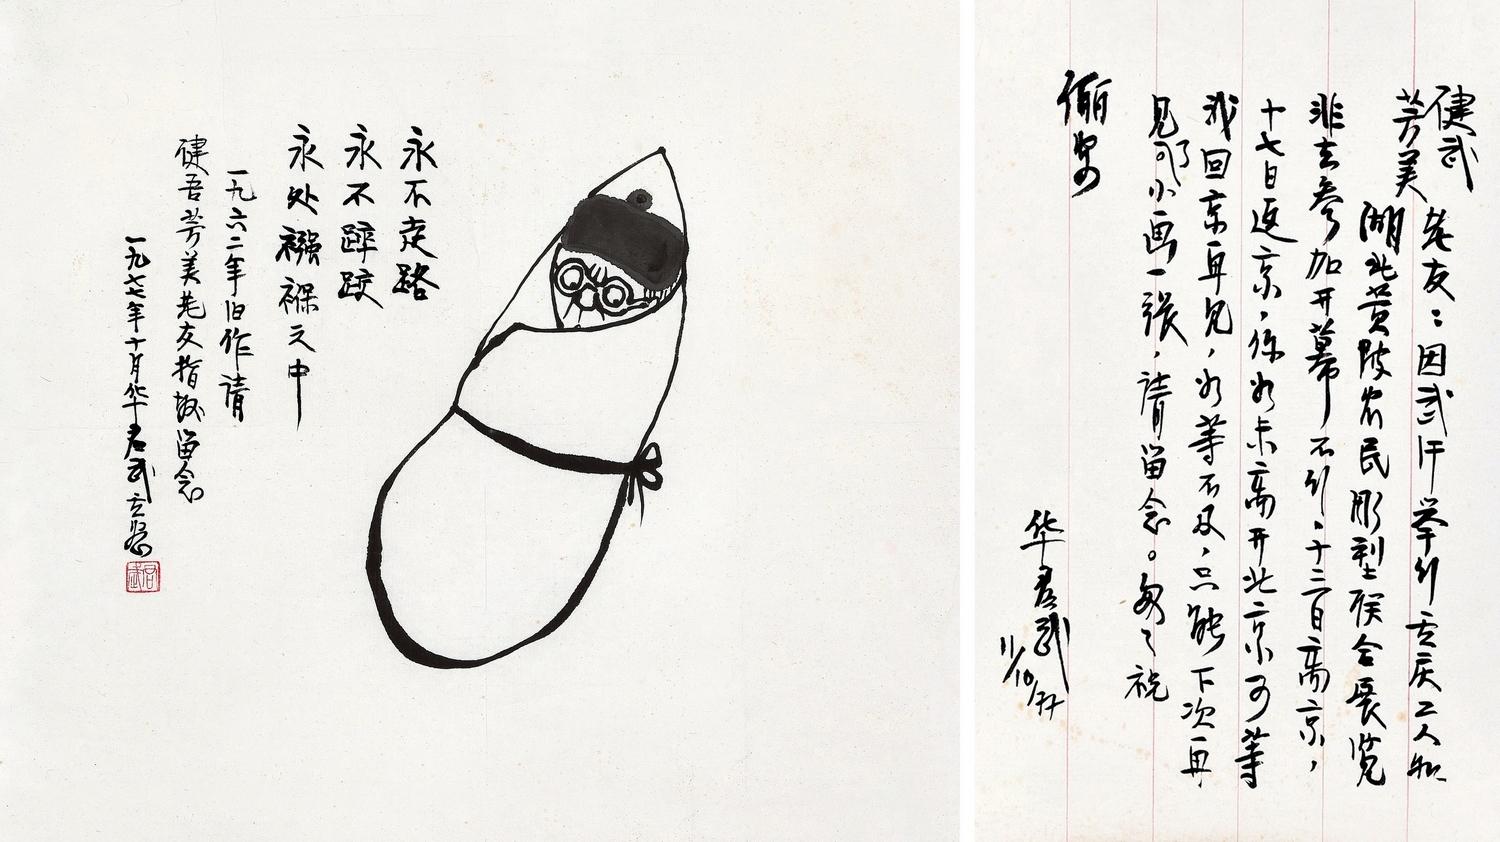 永不走路
永不踤跤
永处襁褓之中
一九六二年旧作请
健吾芳美老友指教留念
一九七七年十月华君武
君武
健武
芳美
老友：因武汗举行重庆工人和
湖北黄陂农民彫型联合展览
非去参加开幕不行。十三日离京，
十七日返京，你如未离开北京可等
我回京再见，如等不及，只能下次再
见了小画一张，请留念。匆匆祝
俪安
华君武
11/10/77